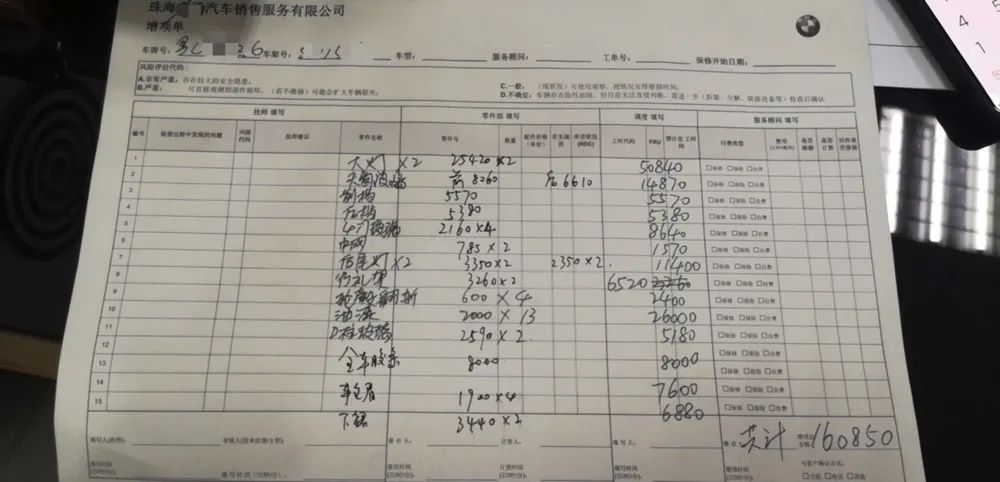 珠海 汽车销售服务有限公司
增项单
车牌号: 粤C 26 车架号: 车型: 服务顾问: 工单号: 保修开始日期:
风险评估代码:
A.非常严重: 存在较大的安全隐患;
C.一般: (现状况) 可使用观察, 按情况安排维修时间。
B.严重:
D.不确定: 车辆存在隐性故障, 但目前无法直接判断, 需进一步 (拆装、分解、联接设备等) 检查后确认
技师 填写 零件部 填写 调度 填写 服务顾问 填写
编号 检查过程中发现的问题 风险代码 技师建议 零件名称 零件号 数量 配件价格(单价) 有无现货 库存状况(RDC) 工时代码 FRU 付费类型 费用 是否维修 是否订货
1 大灯 ×2 25420 ×2 50840 □保修 □保险 □自费
2 前 8260 后 6610 14870 □保修 □保险 □自费
3 前档 5570 5570 □保修 □保险 □自费
4 后档 5380 5380 □保修 □保险 □自费
5 4门玻璃 2160×4 8640 □保修 □保险 □自费
6 中网 785 ×2 1570 □保修 □保险 □自费
7 后尾灯 ×2 3350×2 2350×2 11400 □保修 □保险 □自费
8 行礼架 3260×2 6520 □保修 □保险 □自费
9 轮毂翻新 600 × 4 2400 □保修 □保险 □自费
10 油漆 2000 × 13 26000 □保修 □保险 □自费
11 D柱玻璃 2590 × 2 5180 □保修 □保险 □自费
12 □保修 □保险 □自费
13 全车胶条 8000 8000 □保修 □保险 □自费
14 □保修 □保险 □自费
15 车眉 1900 ×4 7600 □保修 □保险 □自费
下裙 3440 ×2 6880 □保修 □保险 □自费
填写人(技师): 审核人(技术经理/主管): 报价人: 订货人: 填写人: 共计 160850
填写时间(日/时/分): 填写时间 (日/时/分): 报价时间(日/时/分) 订货时间(日/时/分) 填写时间(日/时/分) 与客户确认方式:
□当面 □电话 □其他